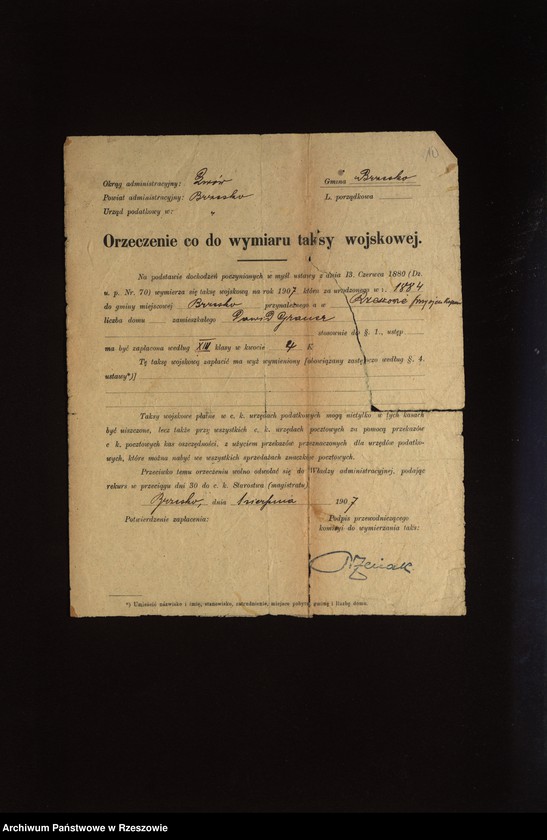 Okrąg administracyjny: Lwów
Gmina Brzesko
Powiat administracyjny: Brzesko
L. porządkowa
Urząd podatkowy w: "
Orzeczenie co do wymiaru taksy wojskowej.
Na podstawie dochodzeń poczynionych w myśl ustawy z dnia 13. Czerwca 1880 (Dz.
u. p. Nr. 70) wymierza się taksę wojskową na rok 1907 którą za urodzonego w r. 1884
do gminy miejscowej Brzesko przynależnego a w Rzeszowie
liczba domu zamieszkałego Dawid Grauer
stosownie do § 1., ustęp
ma być zapłacona według XIV klasy w kwocie 4 K
Tę taksę wojskową zapłacić ma wyż wymieniony [obowiązany zastępczo według §. 4.
ustawy*)]
Taksy wojskowe płatne w c. k. urzędach podatkowych mogą nietylko w tych kasach
być uiszczone, lecz także przy wszystkich c. k. urzędach pocztowych za pomocą przekazów
c k. pocztowych kas oszczędności, z użyciem przekazów przeznaczonych dla urzędów podatko-
wych, które można nabyć we wszystkich sprzedażach znaczków pocztowych.
Przeciwko temu orzeczeniu wolno odwołać się do Władzy administracyjnej, podając
rekurs w przeciągu dni 30 do c. k. Starostwa (magistratu)
Brzesko, dnia 1 sierpnia 1907
Potwierdzenie zapłacenia:
Podpis przewodniczącego
komisyi do wymierzania taks:
*) Umieścić nazwisko i imię, stanowisko, zatrudnienie, miejsce pobytu, gminę i liczbę domu.
Archiwum Państwowe w Rzeszowie